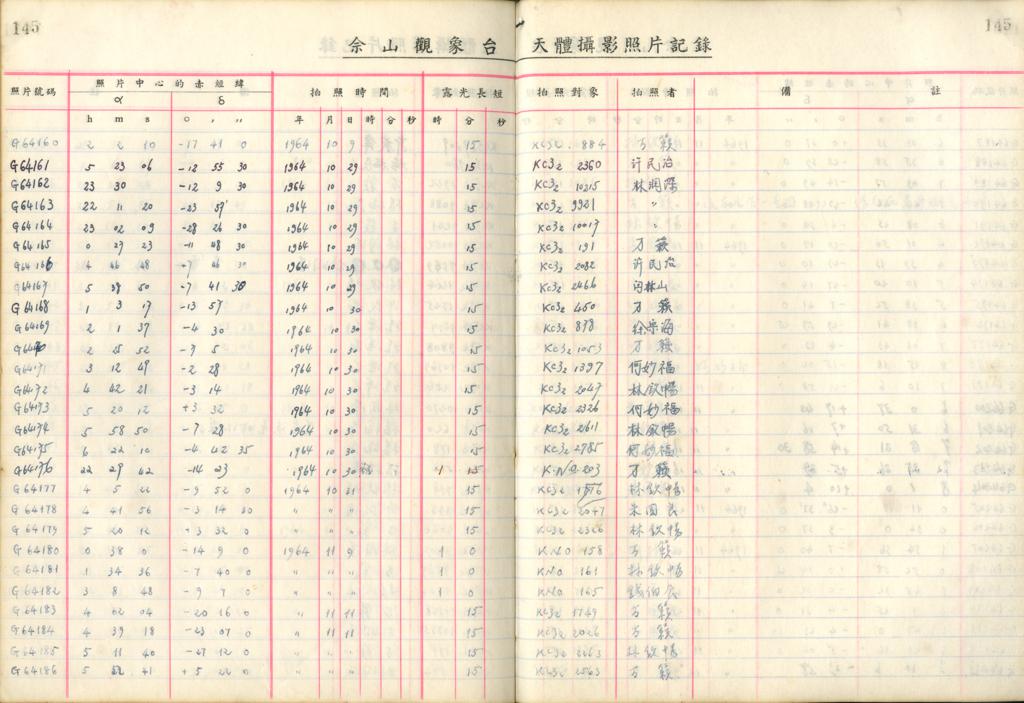 145 145
佘山觀象台 天體攝影照片記錄
照片號碼 照片中心的赤經緯 拍照時間 露光長短 拍照對象 拍照者 備註
α δ
h m s ° ′ ″ 年 月 日 時 分 秒 時 分 秒
G64160 2 2 10 -17 41 0 1964 10 9 15 KC32 884 万籁
G64161 5 23 06 -12 55 30 1964 10 29 15 KC32 2360 许民治
G64162 23 30 -12 9 30 1964 10 29 15 KC32 10215
G64163 22 11 20 -23 1964 10 29 15 KC32 9921 〃
G64164 23 02 09 -28 26 30 1964 10 29 15 KC32 10017 〃
G64165 0 27 23 -11 48 30 1964 10 29 15 KC32 191 万籁
G64166 4 46 48 +7 46 30 1964 10 29 15 KC32 2082 许民治
G64167 5 38 50 -7 41 30 1964 10 29 15 KC32 2466
G64168 1 3 17 -13 57 1964 10 30 15 KC32 450 万籁
G64169 2 1 37 -4 30 1964 10 30 15 KC32 878 徐宗海
G64170 2 25 52 -7 5 1964 10 30 15 KC32 1053 万籁
G64171 3 12 49 -2 28 1964 10 30 15 KC32 1397 何妙福
G64172 4 42 21 -3 14 1964 10 30 15 KC32 2047 林欽暢
G64173 5 20 12 +3 32 1964 10 30 15 KC32 2326 何妙福
G64174 5 58 50 -7 28 1964 10 30 15 KC32 2611 林欽暢
G64175 6 22 10 -4 42 35 1964 10 30 15 KC32 2785 何妙福
G64176 22 29 42 -14 23 1964 10 30 1 15 203 万籁
G64177 4 5 22 -9 52 0 1964 10 31 15 KC32 林欽暢
G64178 4 41 56 -3 14 30 〃 〃 〃 15 KC32 2047 朱國良
G64179 5 20 12 +3 32 0 〃 〃 〃 15 KC32 2326 林欽暢
G64180 0 38 0 -14 9 0 1964 11 9 1 0 KNO 158 万籁
G64181 1 34 36 -7 40 0 〃 〃 〃 1 0 KNO 161 林欽暢
G64182 3 8 48 -9 7 0 〃 〃 〃 1 0 KNO 165
G64183 4 02 04 -20 16 0 〃 11 11 15 KC32 1749 万籁
G64184 4 39 18 -23 07 0 〃 11 11 15 KC32 2026 万籁
G64185 5 11 40 -27 12 0 〃 〃 〃 15 KC32 2263 林欽暢
G64186 5 52 41 +5 22 0 〃 〃 〃 15 KC32 2563 万籁